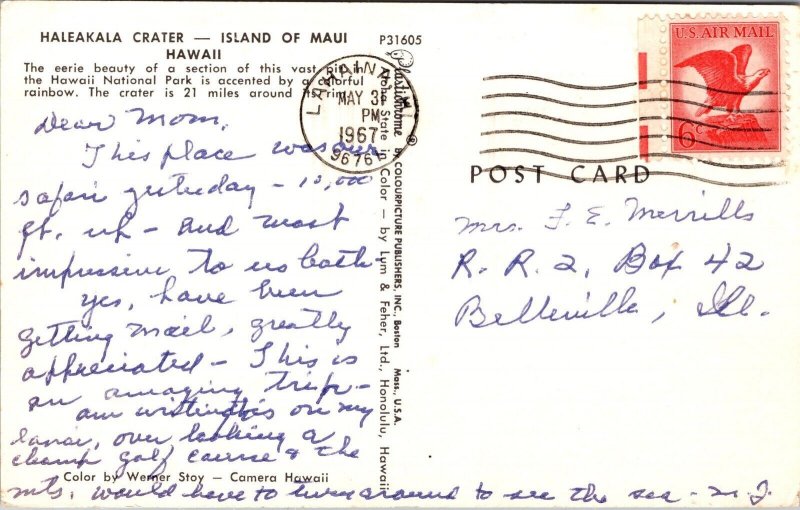 HALEAKALA CRATER — ISLAND OF MAUI
HAWAII
The eerie beauty of a section of this vast pit in
the Hawaii National Park is accented by a colorful
rainbow. The crater is 21 miles around its rim.
P31605
Dear Mom,
This place was our
safari yesterday - 10,000
ft. up - and most
impressive to us both -
yes, have been
getting mail, greatly
appreciated - This is
an amazing trip -
am writing this on my
lanai, over looking a
champ golf course & the
mts, would have to turn around to see the sea - M. J.
Color by Werner Stoy - Camera Hawaii
Plastichrome ® by COLOURPICTURE PUBLISHERS, INC., Boston Mass., U.S.A.
Aloha State in Color — by Lum & Feher, Ltd., Honolulu, Hawaii
LAHAINA
MAY 31
PM
1967
96761
U.S. AIR MAIL
6c
POST CARD
Mrs. F. E. Merrills
R. R. 2, Box 42
Belleville, Ill.